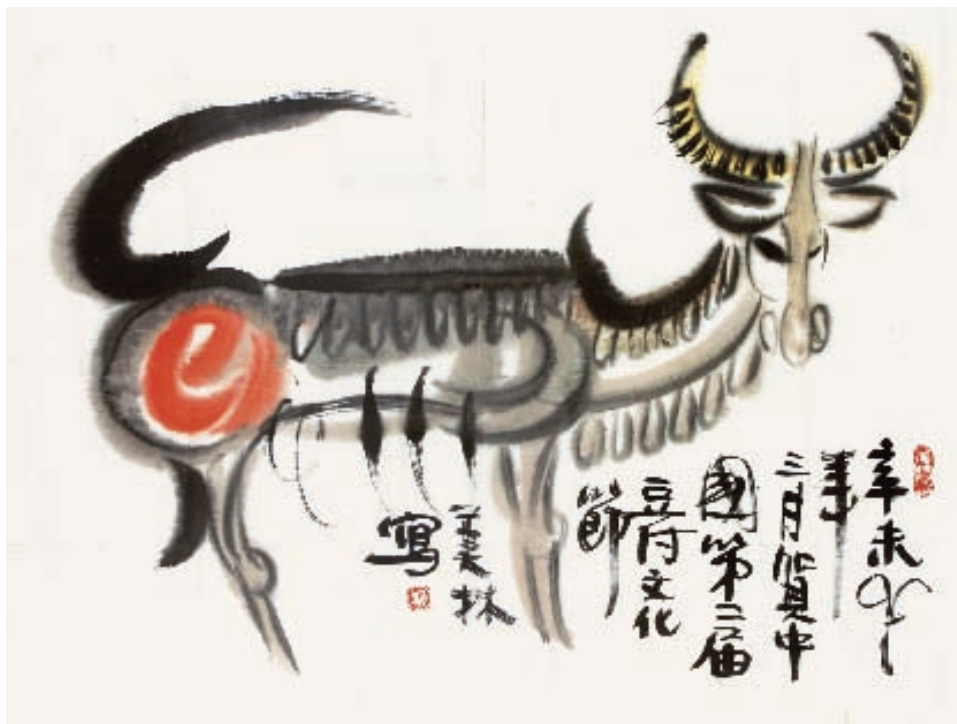 辛未
羊
三月賀中
國第二届
豆付文化
節
美林
寫